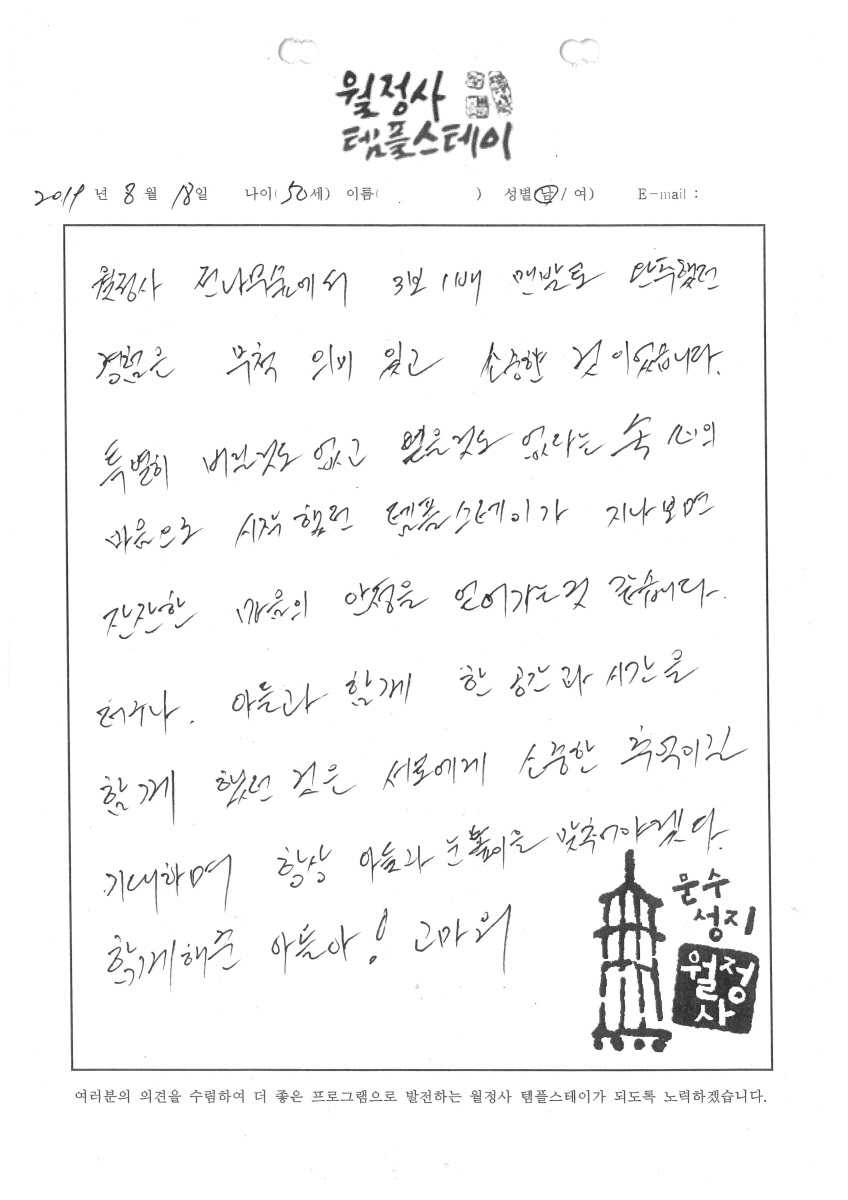 월정사
템플스테이
2019 년 8 월 18 일 나이( 50 세) 이름( ) 성별(남/여) E-mail :
월정사 전나무숲에서 3보 1배 맨발로 안주했던
경험은 무척 의미 있고 소중한 것이었습니다.
특별히 버릴것도 없고 얻을것도 없다는 속 心의
마음으로 시작했던 템플스테이가 지나보면
잔잔한 마음의 안정을 얻어가는것 같습니다.
더구나. 아들과 함께 한 공간과 시간을
함께 했던 것은 서로에게 소중한 추억이길
기대하며 항상 아들과 눈높이를 맞추어야겠다.
함께해준 아들아! 고마워
문수
성지
월정
사
여러분의 의견을 수렴하여 더 좋은 프로그램으로 발전하는 월정사 템플스테이가 되도록 노력하겠습니다.